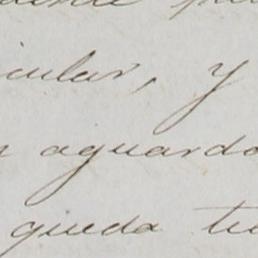 icular, y
aguardo
queda tu